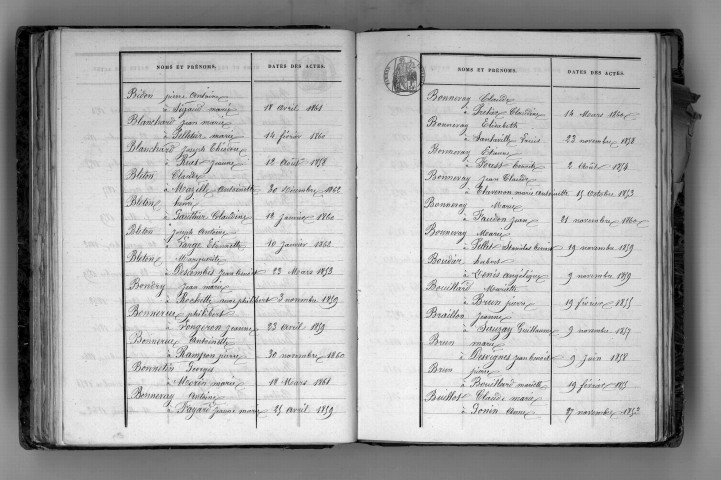 NOMS ET PRÉNOMS. DATES DES ACTES.
Bidon pierre antoine
à Sigaud marie 18 avril 1861
Blanchard jean marie
à Pelletier marie 14 février 1860
Blanchard joseph Etienne
à Rias jeanne 12 Août 1858
Bléton Claude
à Mazille Antoinette 30 Décembre 1862
Bléton
à Gauthier Claudine 18 janvier 1860
Bléton joseph Antoine
à Farge Etiennette 10 janvier 1862
Bléton Marguerite
à Descombes jean benoit 22 Mars 1853
Bondry jean marie
à Rochette anne philibert 3 novembre 1859
Bonnerue philibert
à Vongeron jeanne 23 avril 1859
Bonnerue Antoinette
à Rampon pierre 30 novembre 1860
Bonnetin Georges
à Morin marie 18 Mars 1861
Bonnevay Antoine
à Fayard jeanne marie 25 avril 1859
NOMS ET PRÉNOMS. DATES DES ACTES.
Bonnevay Claude
à Protier Claudine 14 Mars 1860
Bonnevay Elisabeth
à Santaville 23 novembre 1858
Bonnevay Etienne
à Forest benoite 2 Août 1854
Bonnevay jean Claude
à Clavenon marie antoinette 15 octobre 1853
Bonnevay Marie
à Faudon jean 21 novembre 1860
Bonnevay Marie
à Pellet Stanislas benoit 19 novembre 1859
Bordier hubert
à Denis angélique 9 novembre 1859
Bouillard Mariette
à Brun pierre 19 février 1855
Braillon jeanne
à Suuzay Guillaume 9 novembre 1857
Brun marie
à Desvignes jean benoit 9 juin 1858
Brun pierre
à Bouillard mariette 19 février 1855
Buillot Claude marie
à Jonin Anne 27 novembre 1852